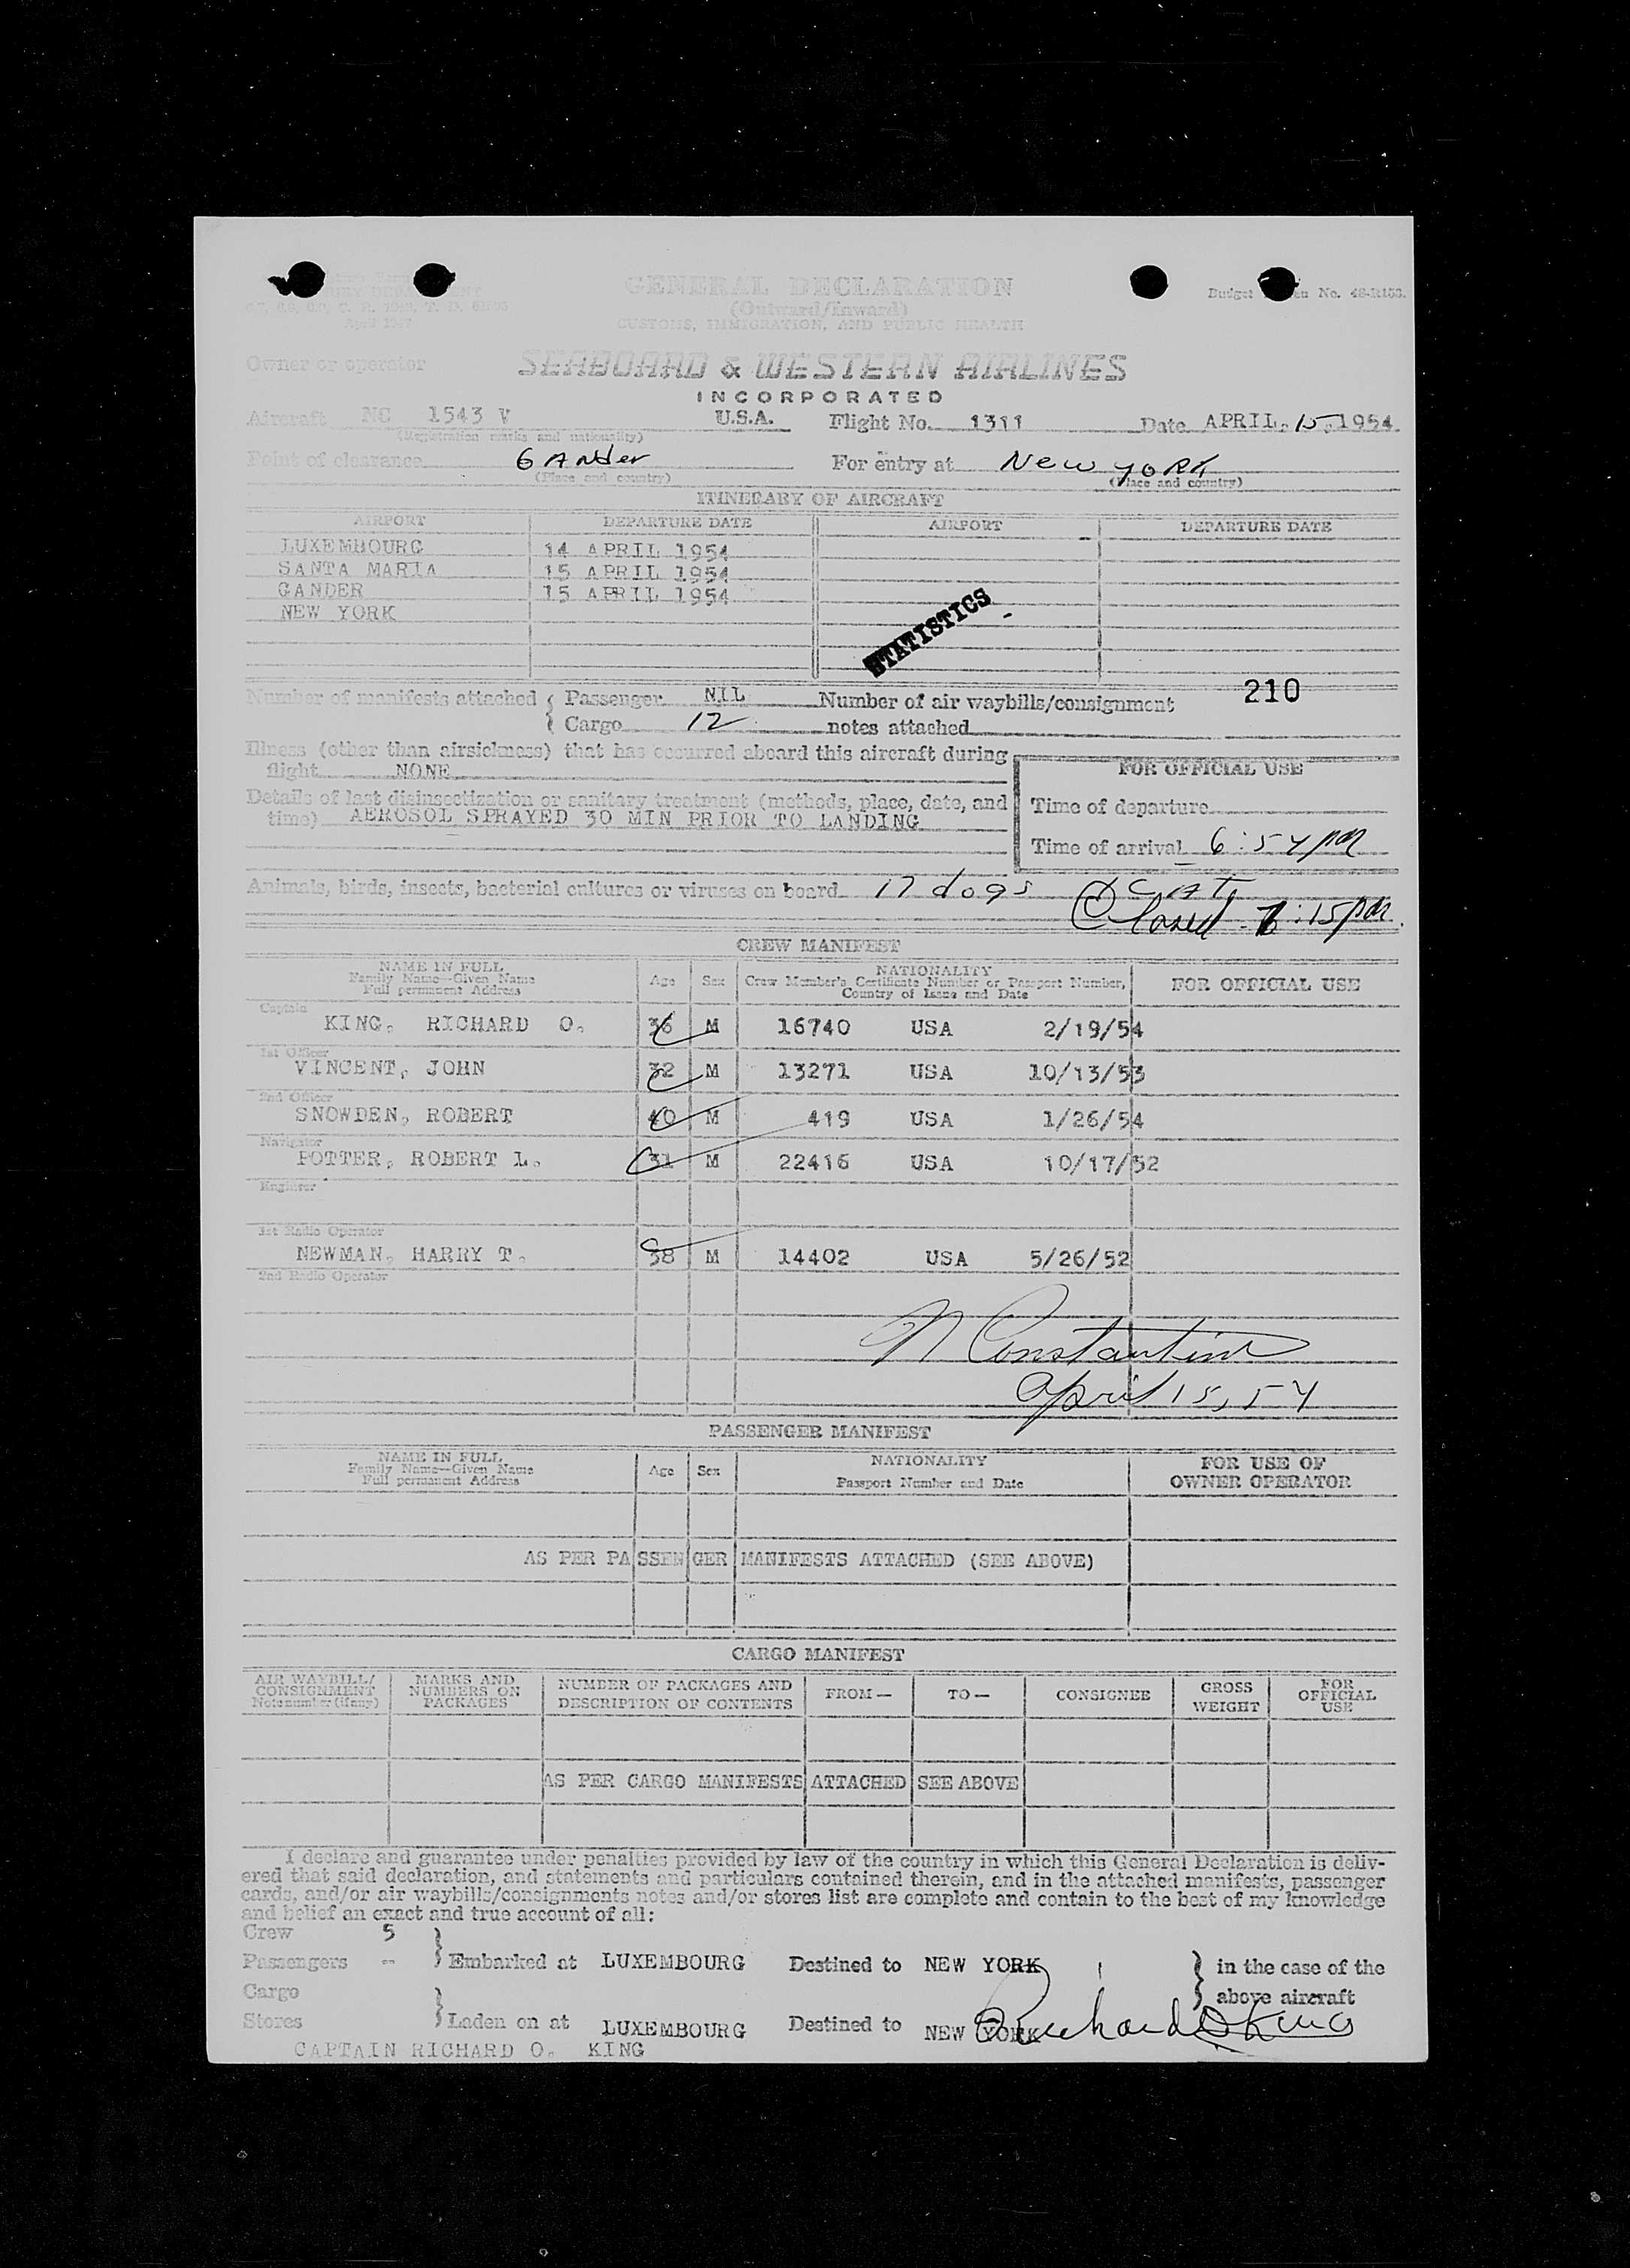 GENERAL DECLARATION
(Outward/Inward)
CUSTOMS, IMMIGRATION, AND PUBLIC HEALTH
April 1947
Budget No.
Owner or operator SEABOARD & WESTERN AIRLINES
INCORPORATED
Aircraft NC 1543 V U.S.A. Flight No. 1311 Date APRIL, 15, 1954
(Registration marks and nationality)
Point of clearance Gander For entry at New York
(Place and country) (Place and country)
ITINERARY OF AIRCRAFT
AIRPORT DEPARTURE DATE AIRPORT DEPARTURE DATE
LUXEMBOURG 14 APRIL 1954
SANTA MARIA 15 APRIL 1954
GANDER 15 APRIL 1954
NEW YORK
STATISTICS
Number of manifests attached { Passenger NIL Number of air waybills/consignment 210
Cargo 12 notes attached
Illness (other than airsickness) that has occurred aboard this aircraft during
flight NONE
FOR OFFICIAL USE
Details of last disinsectization or sanitary treatment (methods, place, date, and
time) AEROSOL SPRAYED 30 MIN PRIOR TO LANDING
Time of departure
Time of arrival 6:54 PM
Animals, birds, insects, bacterial cultures or viruses on board 17 dogs
Closed :15 PM
CREW MANIFEST
NAME IN FULL Age Sex NATIONALITY FOR OFFICIAL USE
Family Name—Given Name Crew Member's Certificate Number or Passport Number,
Full permanent Address Country of Issue and Date
Captain
KING, RICHARD O. 36 M 16740 USA 2/19/54
1st Officer
VINCENT, JOHN 32 M 13271 USA 10/13/53
2nd Officer
SNOWDEN, ROBERT 40 M 419 USA 1/26/54
Navigator
POTTER, ROBERT L. 31 M 22416 USA 10/17/52
Engineer
1st Radio Operator
NEWMAN, HARRY T. 38 M 14402 USA 5/26/52
2nd Radio Operator
N Constantine
April 15, 54
PASSENGER MANIFEST
NAME IN FULL Age Sex NATIONALITY FOR USE OF
Family Name—Given Name Passport Number and Date OWNER OPERATOR
Full permanent Address
AS PER PASSENGER MANIFESTS ATTACHED (SEE ABOVE)
CARGO MANIFEST
AIR WAYBILL/ MARKS AND NUMBER OF PACKAGES AND FROM— TO— CONSIGNEE GROSS FOR
CONSIGNMENT NUMBERS ON DESCRIPTION OF CONTENTS WEIGHT OFFICIAL
Note number (if any) PACKAGES USE
AS PER CARGO MANIFESTS ATTACHED SEE ABOVE
I declare and guarantee under penalties provided by law of the country in which this General Declaration is deliv-
ered that said declaration, and statements and particulars contained therein, and in the attached manifests, passenger
cards, and/or air waybills/consignments notes and/or stores list are complete and contain to the best of my knowledge
and belief an exact and true account of all:
Crew 5
Passengers - } Embarked at LUXEMBOURG Destined to NEW YORK } in the case of the
Cargo above aircraft
Stores } Laden on at LUXEMBOURG Destined to NEW YORK Richard O King
CAPTAIN RICHARD O. KING